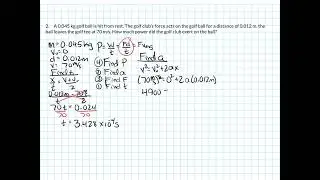 2. A 0.045 kg golf ball is hit from rest. The golf club's force acts on the golf ball for a distance of 0.012 m. the
ball leaves the golf tee at 70 m/s. How much power did the golf club exert on the ball?
m = 0.045 kg
v₀ = 0
d = 0.012m
v = 70m/s
Find t
70t = 0.024
70 70
t = 3.428 x10⁻⁴s
P =
= Favg
④ Find P
② Find a
③ Find F
① Find t
Find a
v² = v₀² + 2ax
(70m/s)² = 0² + 2a(0.012m)
4900 =